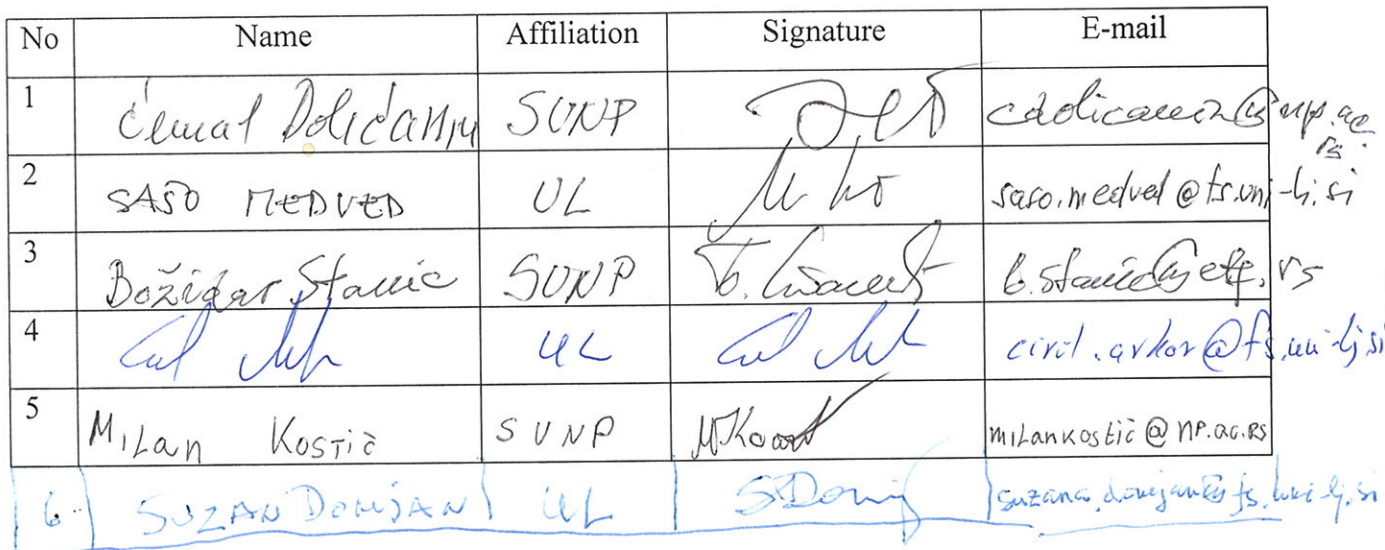 No Name Affiliation Signature E-mail
1 Ćemal Dolićanin SUNP cdolicanin@np.ac.rs
2 SAŠO MEDVED UL saso.medved@fs.uni-lj.si
3 Božidar Stanic SUNP b.stanic@etf.rs
4 UL civil.arkar@fs.uni-lj.si
5 MILan KosTič SUNP MKos milankostic@np.ac.rs
6. SUZAN DOMJAN UL SDomj suzana.domjan@fs.uni-lj.si